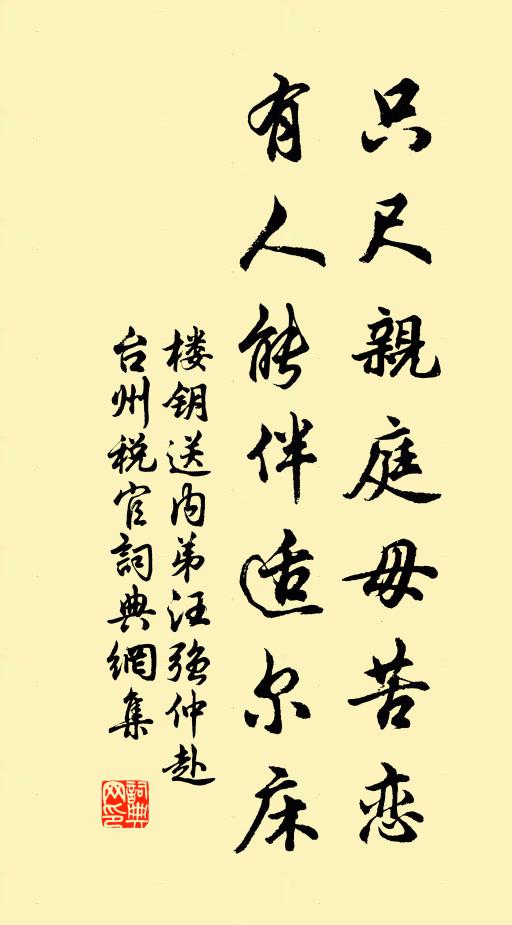 只尺親庭毋苦恋
有人能伴适尔床
楼钥送内弟汪强仲赴
台州税官詞典網集
詞典网印